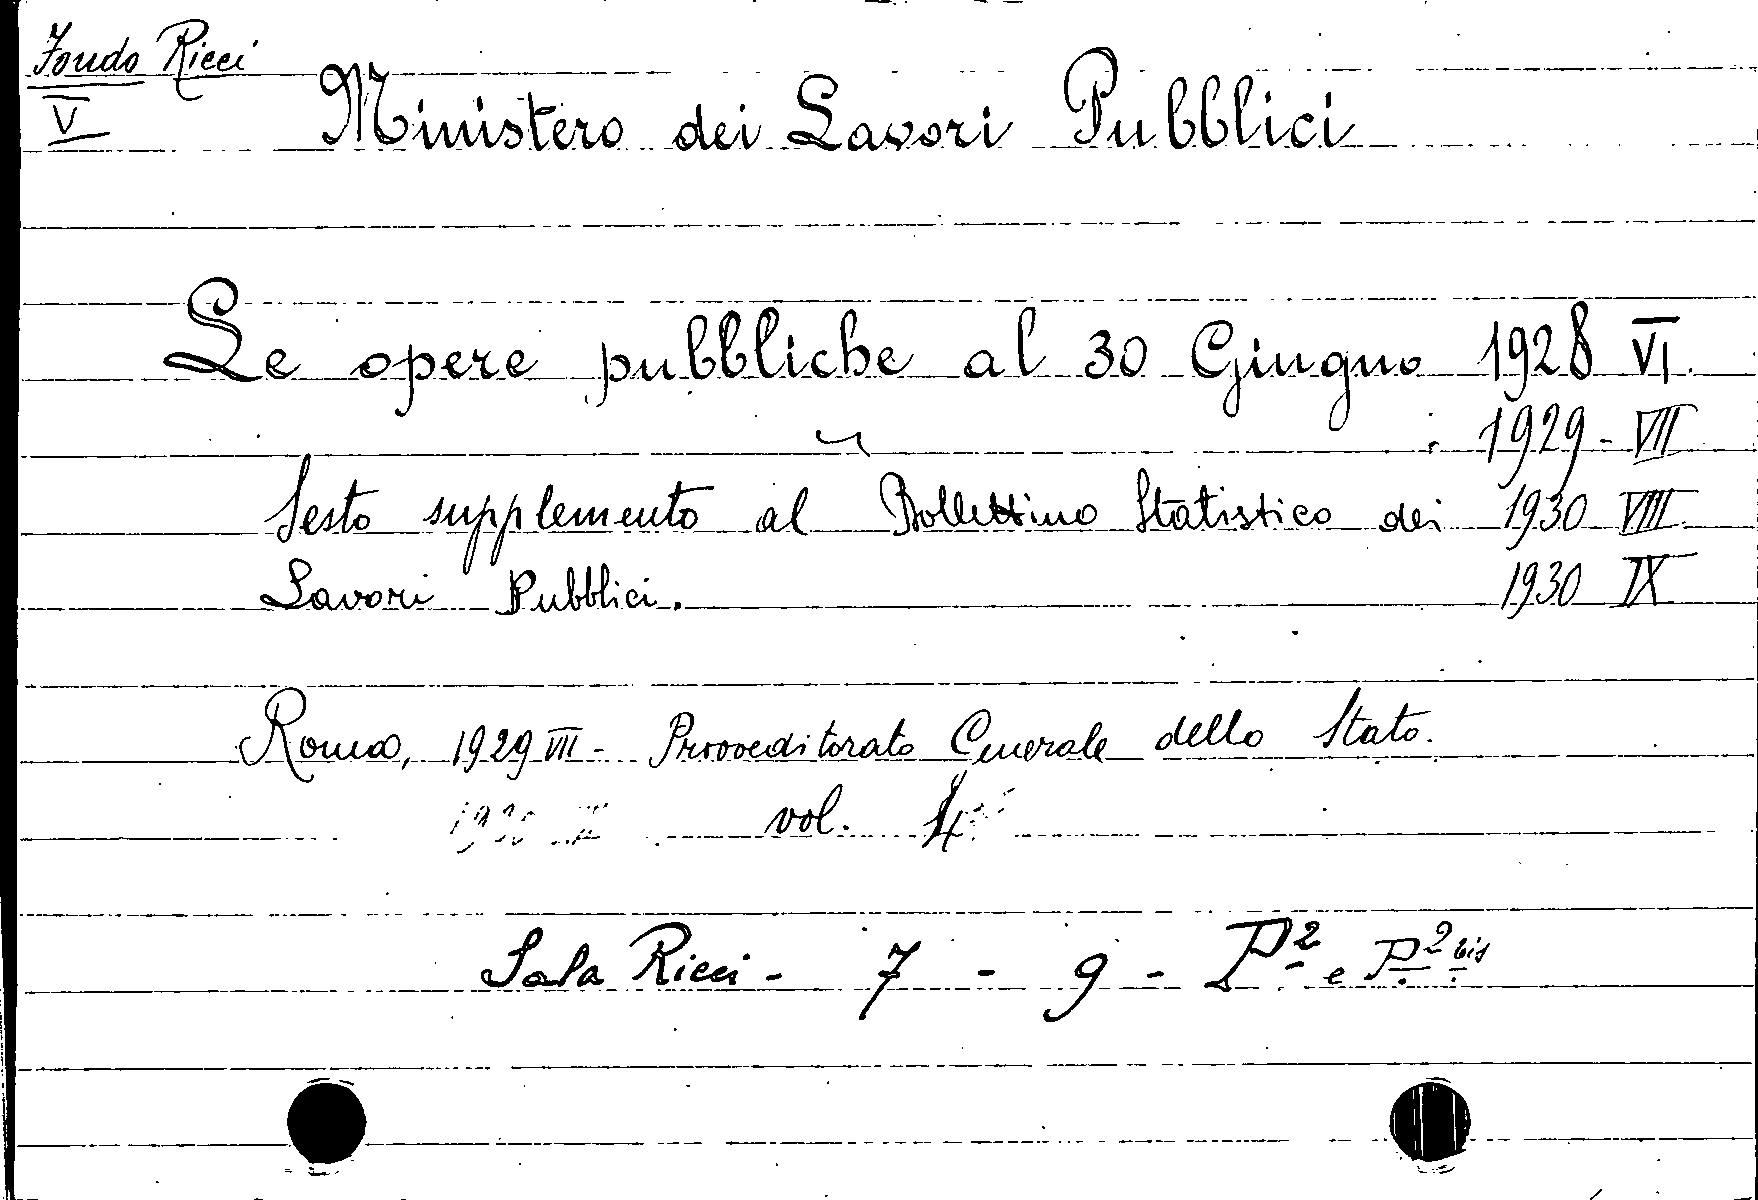 Fondo Ricci
V
Ministero dei Lavori Pubblici
Le opere pubbliche al 30 Giugno 1928 VI
1929 - VII
Sesto supplemento al Bollettino Statistico dei 1930 VIII
Lavori Pubblici. 1930 IX
Roma, 1929 VII - Provveditorato Generale dello Stato.
vol. 4
Sala Ricci - 7 - 9 - P2 e P2 bis